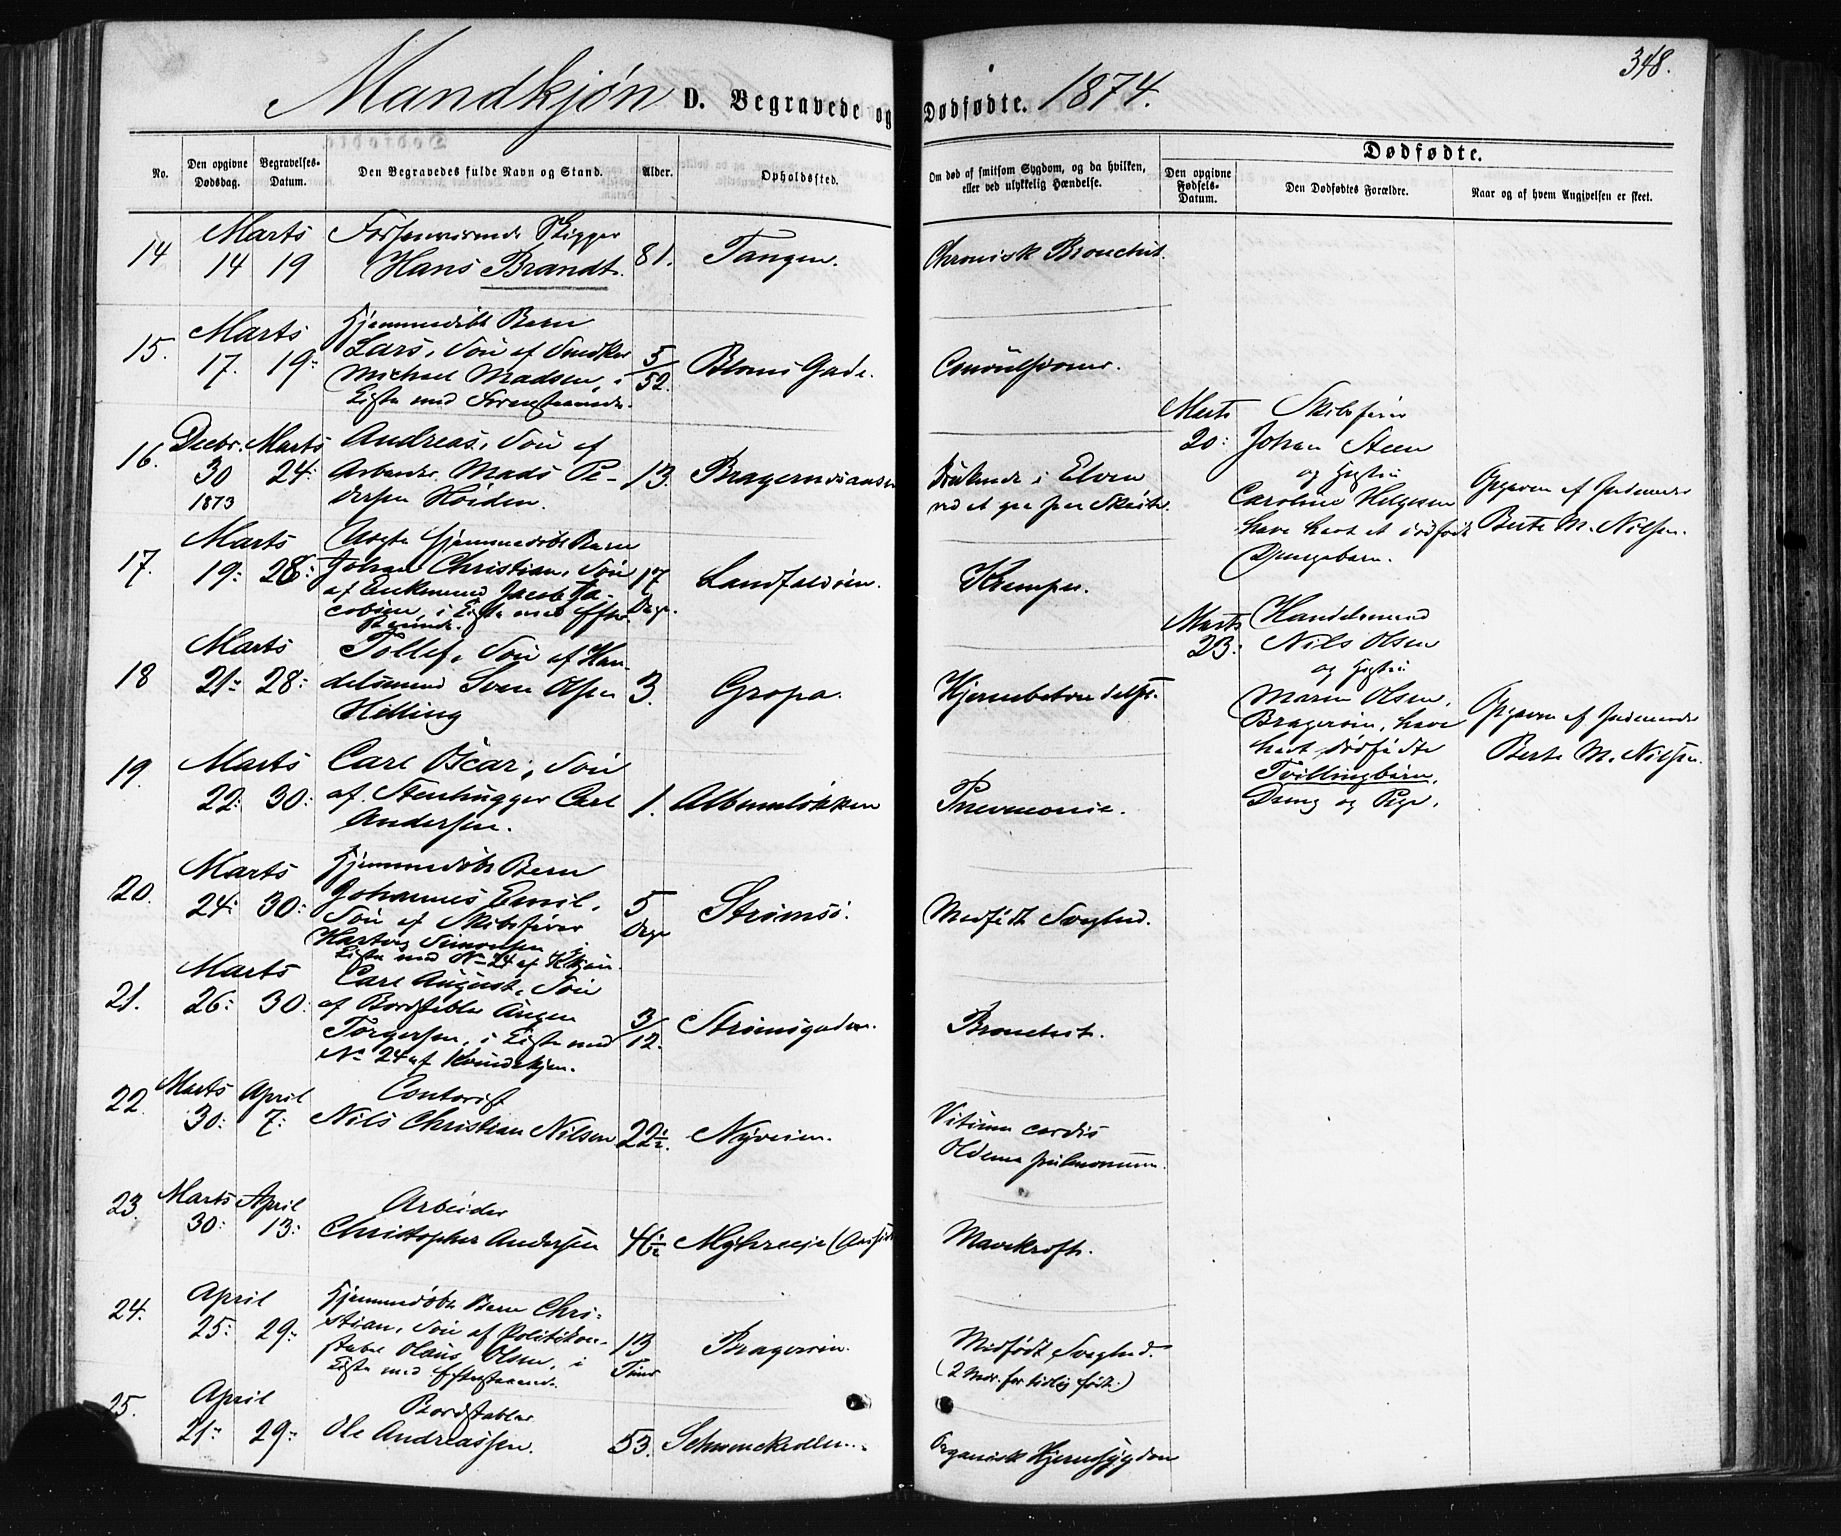 348.
Mandkjøn D. Begravede og Dødfødte. 1874.
No. Den opgivne Dødsdag. Begravelses-Datum. Den Begravedes fulde Navn og Stand. Alder. Opholdssted. Om død af smitsom Sygdom, og da hvilken, eller ved ulykkelig Hændelse.
Dødfødte.
Den opgivne Fødsels-Datum. Den Dødfødtes Forældre. Naar og af hvem Angivelsen er skeet.
Marts
14 14 19 Hans Brandt. 81. Tangen. Chronisk Bronchit.
Marts Hjemmedøbt Barn
15. 17. 19: Lars, Søn af Snedker 5/52. Bloms Gade. Convulsioner.
Michael Madsen, i
Kiste med
16. Decbr. 30 1873 Marts 24: Andreas, Søn af
Arbeider Mads Pe- 13. Bragernesaasen Druknede i Elven
dersen Høiden.
Marts Hjemmedøbt Barn
17. 19: 28: Johan Christian, Søn 17 Dage. Landfaldøen. Kramper.
af Jacob Ja-
cobsen, i Kiste med
Marts Tollef, Søn af Han-
18 21: 28: delsmand Sven Olsen 3. Gropa. Hjernebetændelse.
Helling
Marts Carl Oscar, Søn
19. 22: 30: af Stenhugger Carl 1. Albumløkken Pneumonie.
Andersen.
Marts Hjemmedøbt Barn
20. 24: 30: Johannes Emil, 5 Dage Strømsø. Medfødt Svaghed.
Søn af Skibsfører
Kiste med No 24 af Kvkjøn.
Marts Carl August, Søn
21. 26: 30: af Bordstabler 3/12. Strømsgaden. Bronchit.
Torgersen, i Kiste med
No 24 af Kvindekjøn.
22. Marts 30: April 7: Contorist
Nils Christian Nilsen 22½. Nyveien. Vitium cordis
Oldema pulmonum.
23. Marts 30: April 13: Arbeider
Christopher Andersen 46½ Myhreeje Mavekræft.
April Hjemmedøbt Barn Chri-
24. 25: 29: stian, Søn af Politikon- 13 Timer Bragerøen. Medfødt Svaghed.
stabel Olaus Olsen, i (2 Mdr. for tidlig født.)
Kiste med Efterstaaende.
April Bordstabler
25. 21: 29: Ole Andreassen. 53. Schwenckedalen. Organisk Hjernesygdom
Marts Skibsfører
20: Johan Steen
og Hustru
Caroline Helgesen Opgiven af Jordemoder
have havt et dødfødt Berte M. Nilsen.
Drengebarn.
Marts Handelsmand
23: Nils Olsen
og Hustru
Maren Olsen, Opgiven af Jordemoder
Bragerøen, have Berte M. Nilsen.
havt dødfødte
Tvillingbørn,
Dreng og Pige.